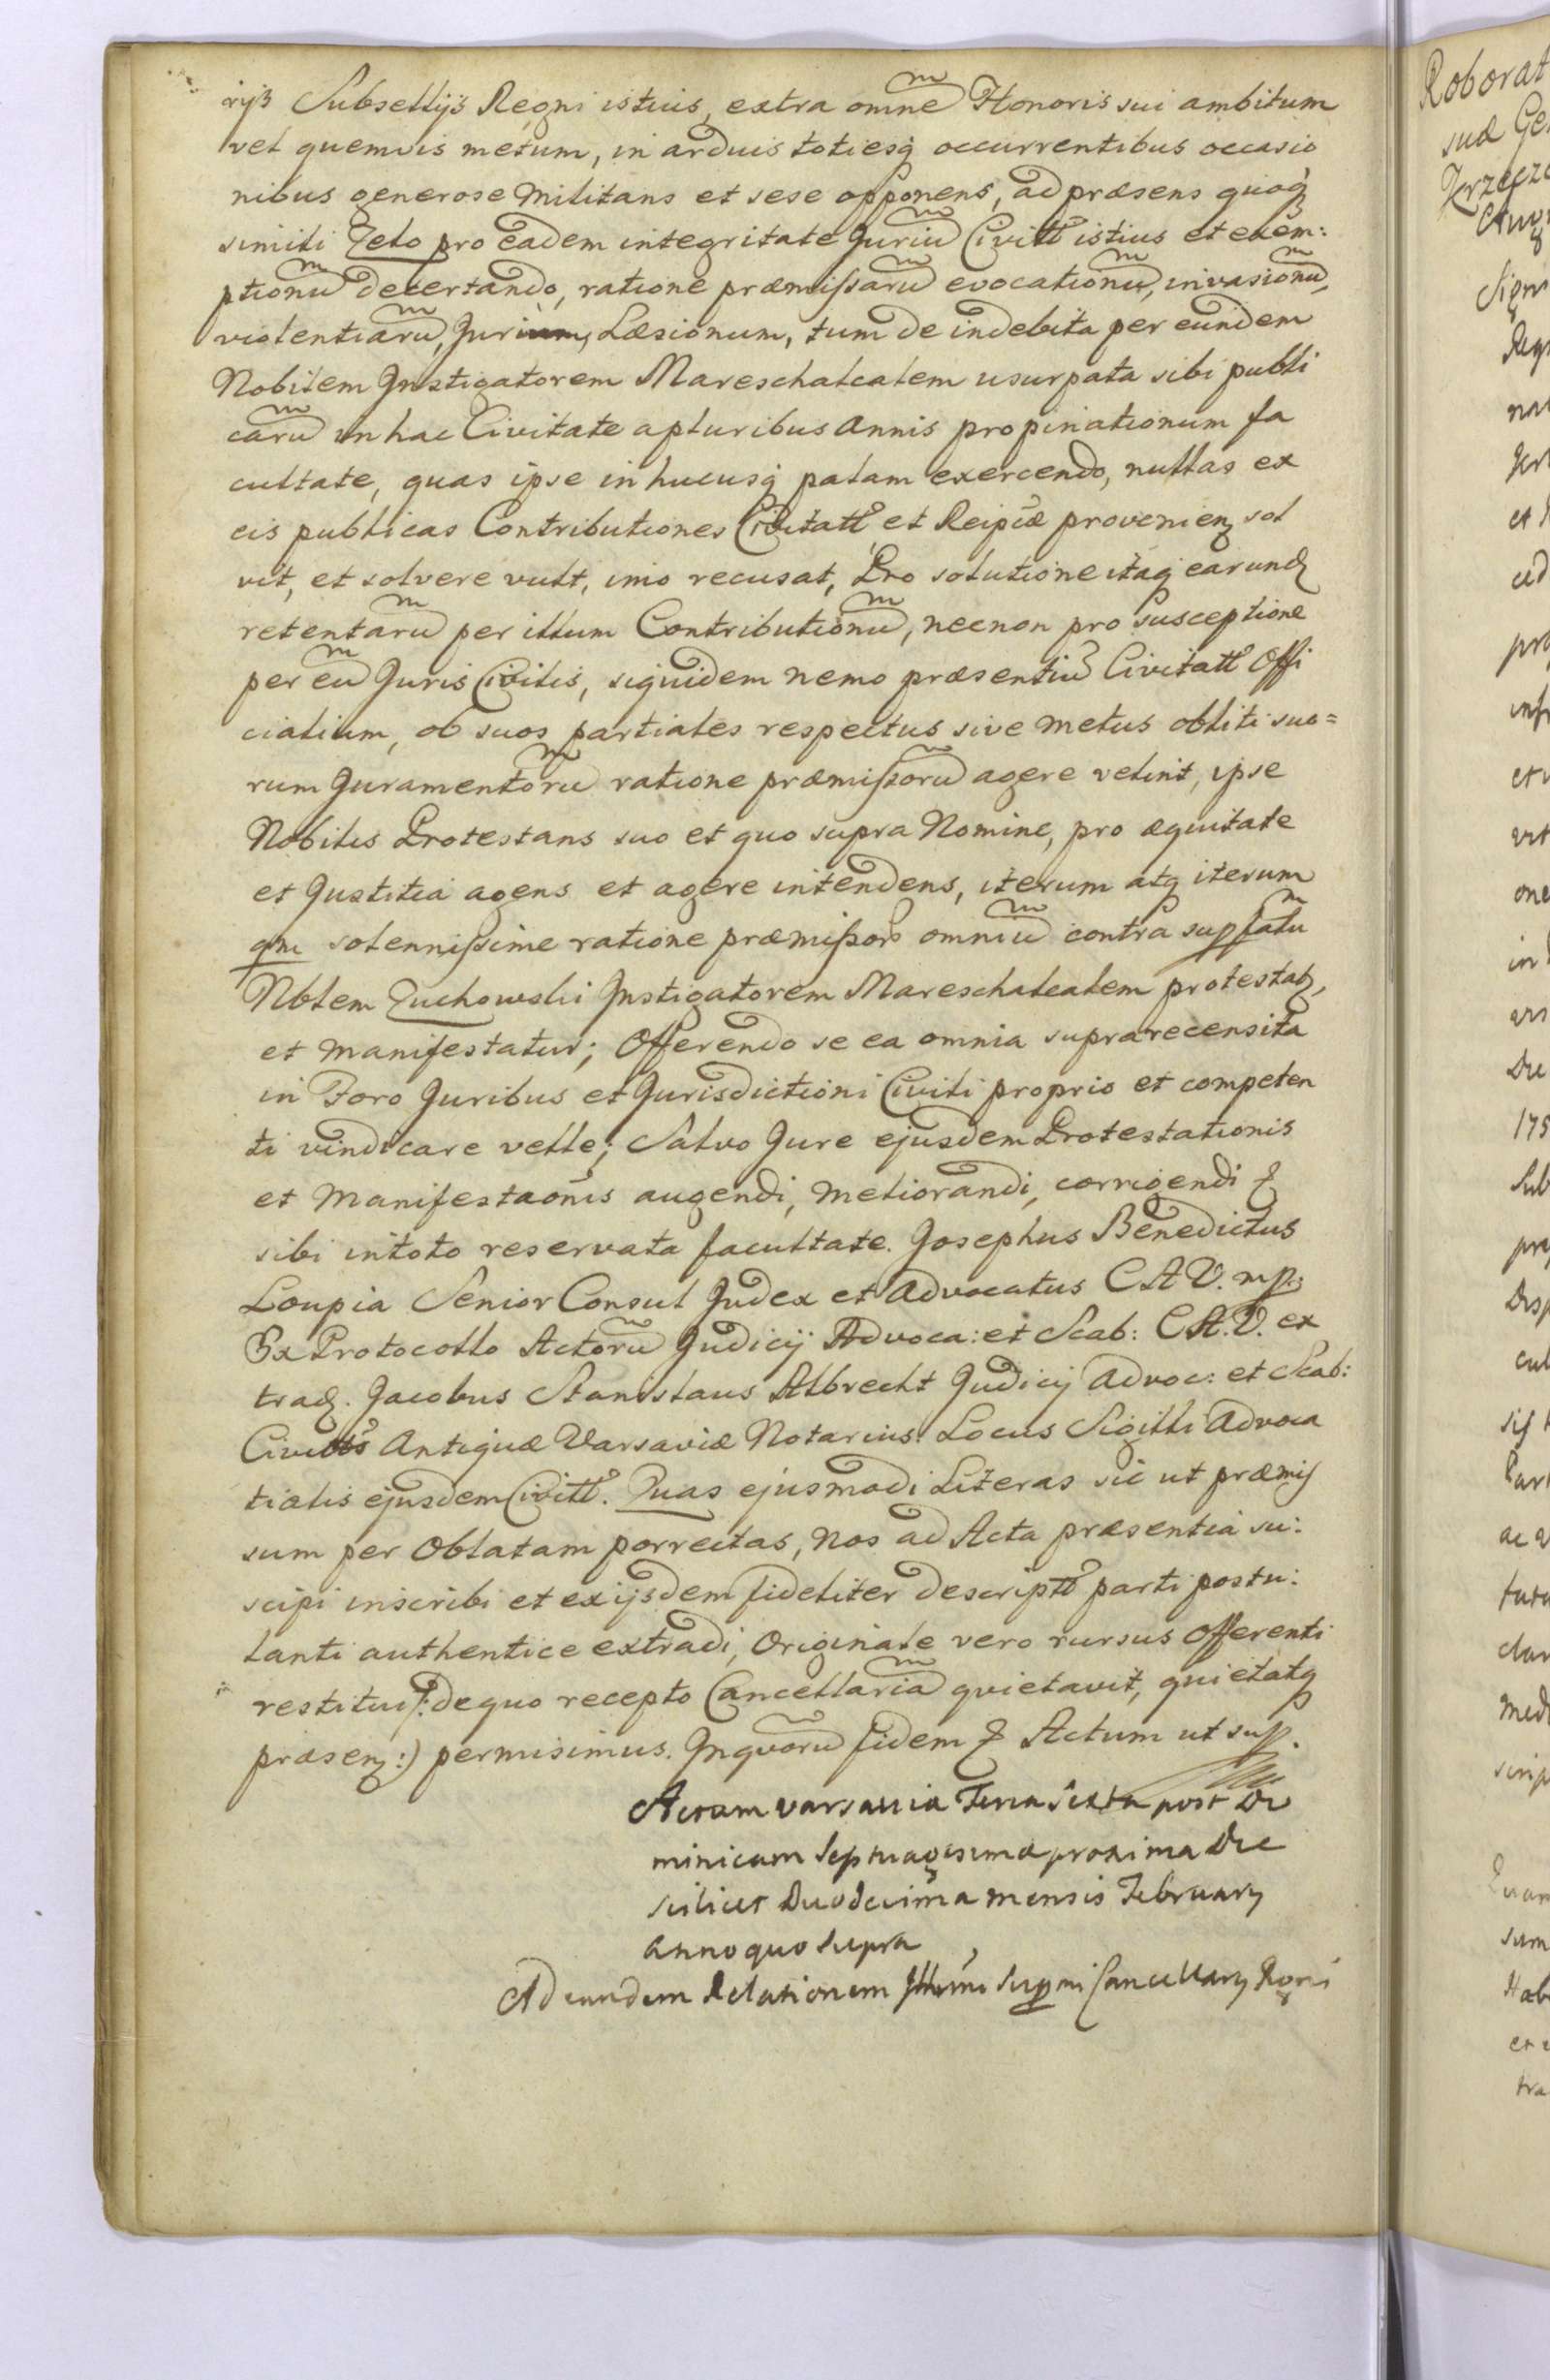 rijs Subsellijs Regni istius, extra omne Honoris sui ambitum
vel quemvis metum, in arduis totiesq occurrentibus occasio
nibus generose Militans et sese opponens, ad præsens quoq
simili Zelo pro eadem integritate Juriu Civitt istius et exem:
ptionu decertando, ratione præmissaru evocationu, invasionu,
violentiaru, Jurium, Læsionum, tum de indebita per eundem
Nobilem Instigatorem Mareschalcalem usurpata sibi publi
caru in hac Civitate a pluribus Annis propinationum fa
cultate, quas ipse in hucusq palam exercendo, nullas ex
eis publicas Contributiones Civitatt et Reipcæ provenien sol
vit, et solvere vult, imo recusat, Pro solutione itaq earund
retentaru per illum Contributionu, necnon pro susceptione
per eu Juris Civilis, siquidem nemo præsentiu Civitatt Offi
cialium, ob suos partiales respectus sive metus obliti suo=
rum Juramentoru ratione præmissoru agere velint, ipse
Nobilis Protestans suo et quo supra Nomine, pro æquitate
et Justitia agens et agere intendens, iterum atq iterum
qm solennissime ratione præmissor omniu contra suppfatu
Nblem Zuchowski Instigatorem Mareschalcalem protestat,
et manifestatur; Offerendo se ea omnia suprarecensita
in Foro Juribus et Jurisdictioni Civili proprio et competen
ti vindicare velle; Salvo Jure ejusdem Protestationis
et Manifestaonis augendi, meliorandi, corrigendi &
sibi in toto reservata facultate. Josephus Benedictus
Loupia Senior Consul Judex et Advocatus C A V. mp.
Ex Protocollo Actoru Judicij Advoca: et Scab: C A. V. ex
trad. Jacobus Stanislaus Albrecht Judicij Advoc: et Scab:
Civitts Antiquæ Varsaviæ Notarius. Locus Sigilli Advoca
tialis ejusdem Civitt. Quas ejusmodi Literas sic ut præmis
sum per Oblatam porrectas, Nos ad Acta præsentia su:
scipi inscribi et ex ijsdem fideliter descriptt parti postu:
lanti authentice extradi, Originale vero rursus Offerenti
restitui /: de quo recepto Cancellaria quietavit, quietatq
præsen :) permisimus. In quoru fidem & Actum ut sup.
Actum Varsavia Feria Sexta post Do
minicam Septuagesima proxima Die
scilicet Duodecima mensis February
anno quo supra
Ad eundem Relationem Illmi Suppmi Cancellary Regni